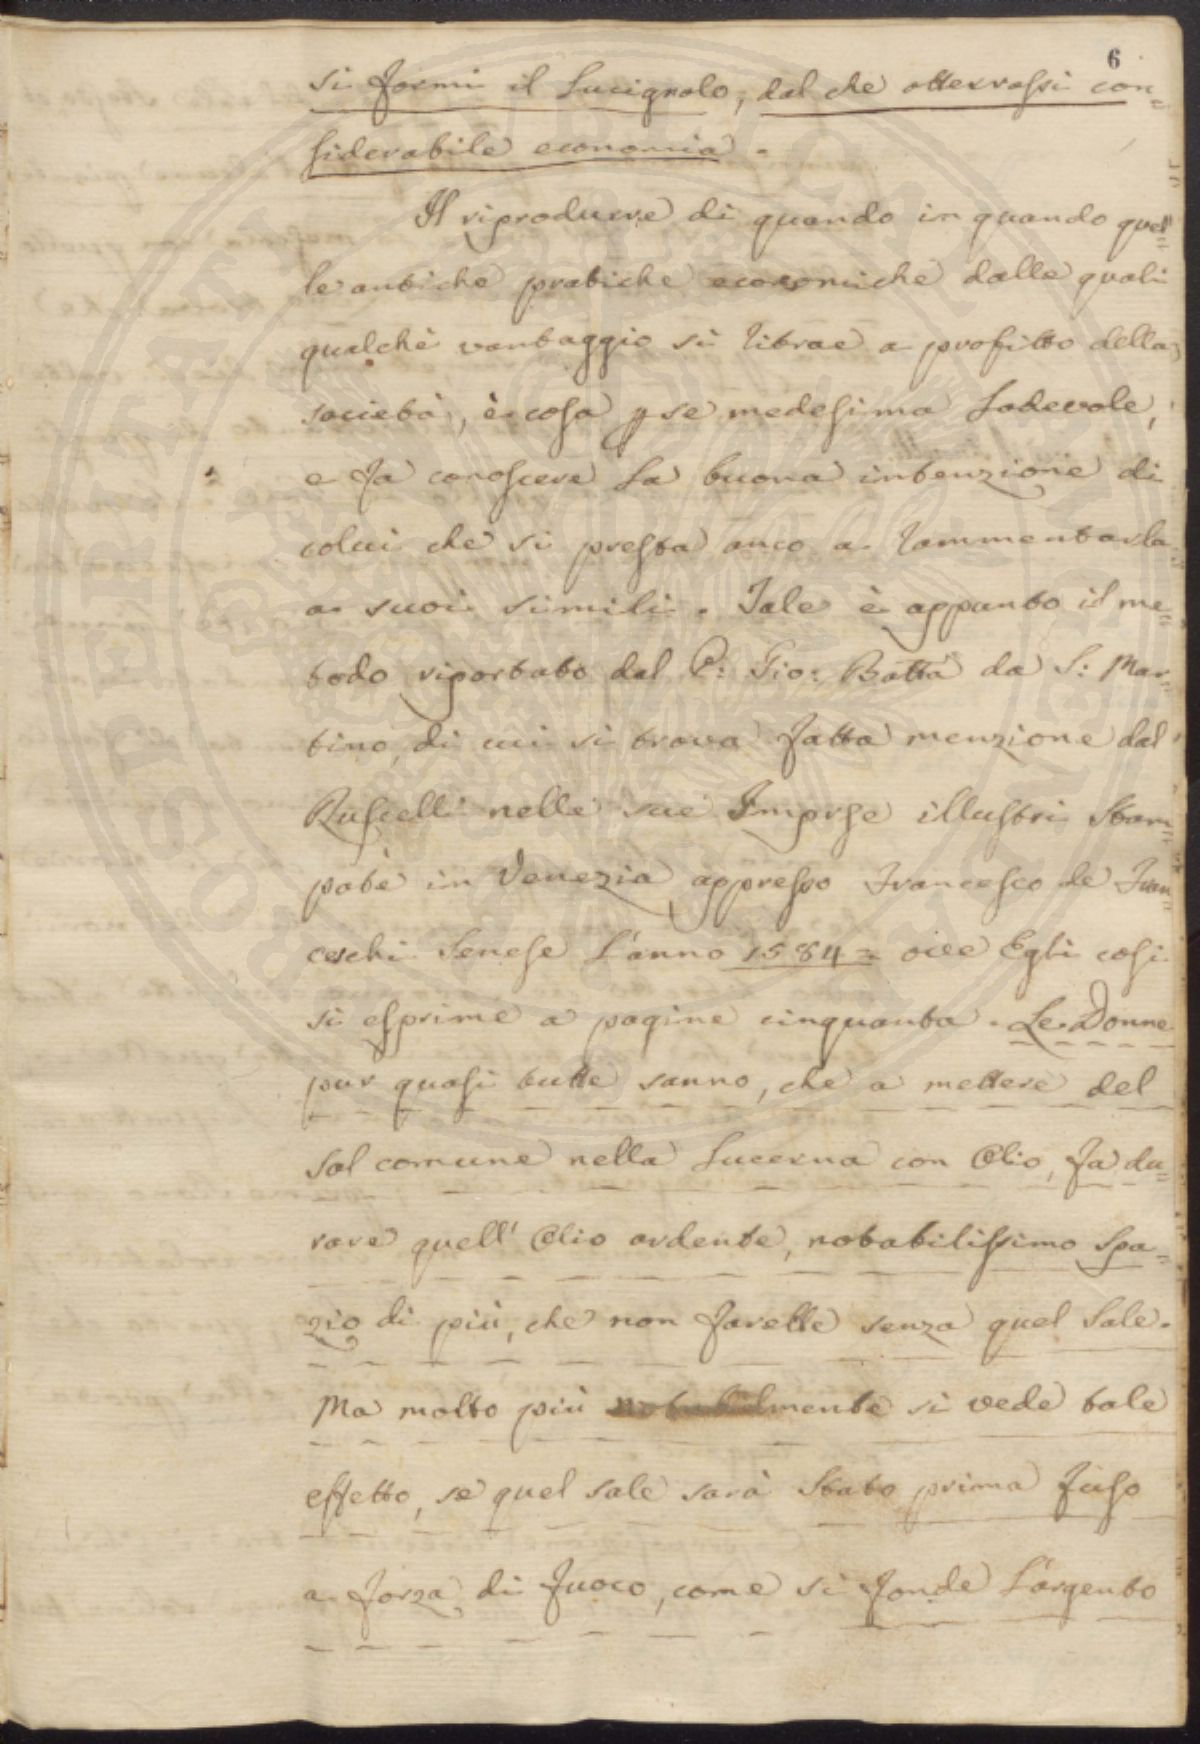 6
si formi il Lucignolo, dal che otterrassi con=
siderabile economia.
Il riprodurre di quando in quando quel=
le antiche pratiche economiche dalle quali
qualche vantaggio si ritrae a profitto della
società, è cosa p se medesima Lodevole,
e fa conoscere La buona intenzione di
colui che si presta anco a rammentarla
a suoi simili. Tale è appunto il me=
todo riportato dal P: Gio: Batta da S: Mar=
tino, di cui si trova fatta menzione dal
Ruscelli nelle sue Imprse illustri Stam=
pate in Venezia appresso Francesco de Fran=
ceschi Senese L'anno 1584 = ove Egli così
si esprime a pagine cinquanta. Le Donne
pur quasi tutte sanno, che a mettere del
Sal comune nella Lucerna con Olio, fa du=
rare quell' Olio ardente, notabilissimo Spa=
zio di più, che non farebbe senza quel Sale.
Ma molto più notabilmente si vede tale
effetto, se quel sale sarà Stato prima fuso
a forza di fuoco, come si fonde L'argento
PROSPERITATI PUBLICAE AUGENDAE